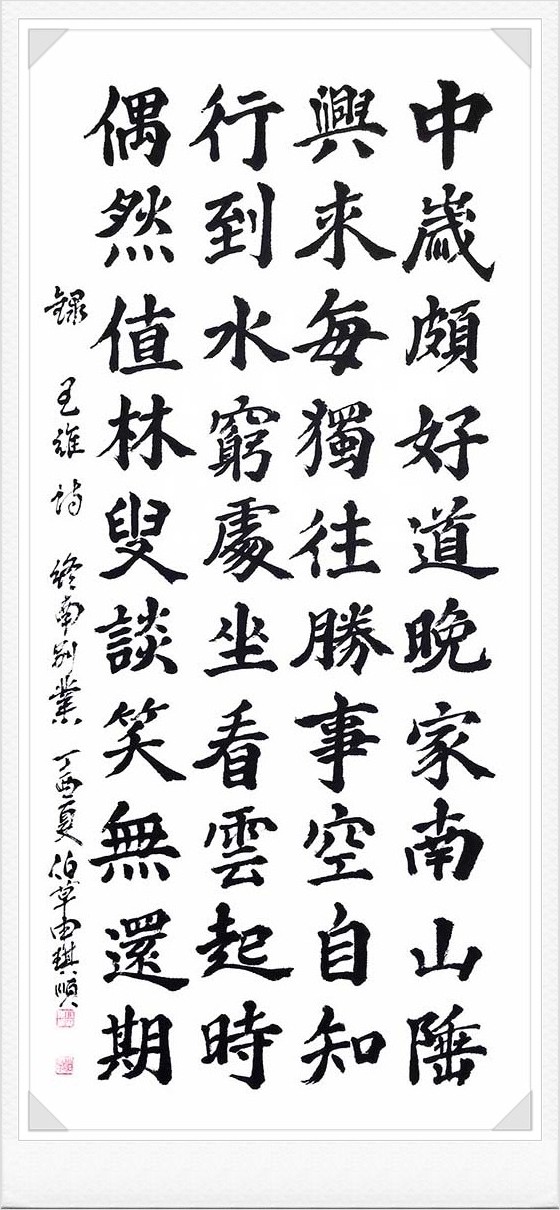 中歲頗好道晩家南山陲
興來每獨往勝事空自知
行到水窮處坐看雲起時
偶然值林叟談笑無還期
錄 王維詩 終南別業 丁酉夏 伯草